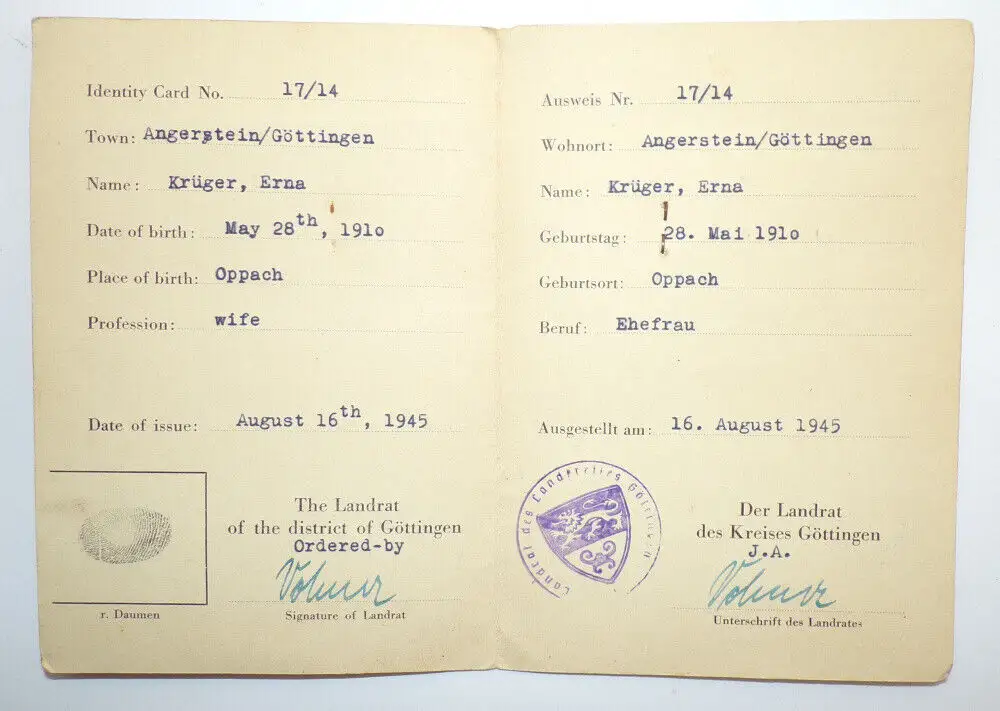 Identity Card No. 17/14
Town: Angerstein/Göttingen
Name: Krüger, Erna
Date of birth: May 28th, 1910
Place of birth: Oppach
Profession: wife
Date of issue: August 16th, 1945
The Landrat
of the district of Göttingen
Ordered-by
Signature of Landrat
r. Daumen
Ausweis Nr. 17/14
Wohnort: Angerstein/Göttingen
Name: Krüger, Erna
Geburtstag: 28. Mai 1910
Geburtsort: Oppach
Beruf: Ehefrau
Ausgestellt am: 16. August 1945
Landrat des Landkreises Göttingen
Der Landrat
des Kreises Göttingen
J.A.
Unterschrift des Landrates